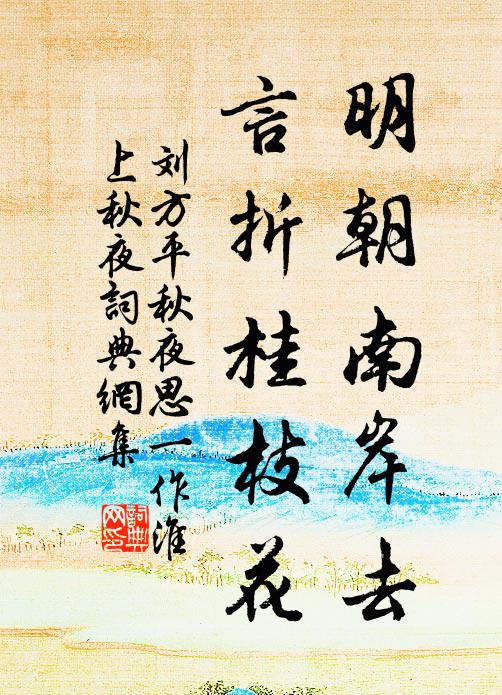 明朝南岸去
言折桂枝花
刘方平秋夜思一作淮
上秋夜詞典網集